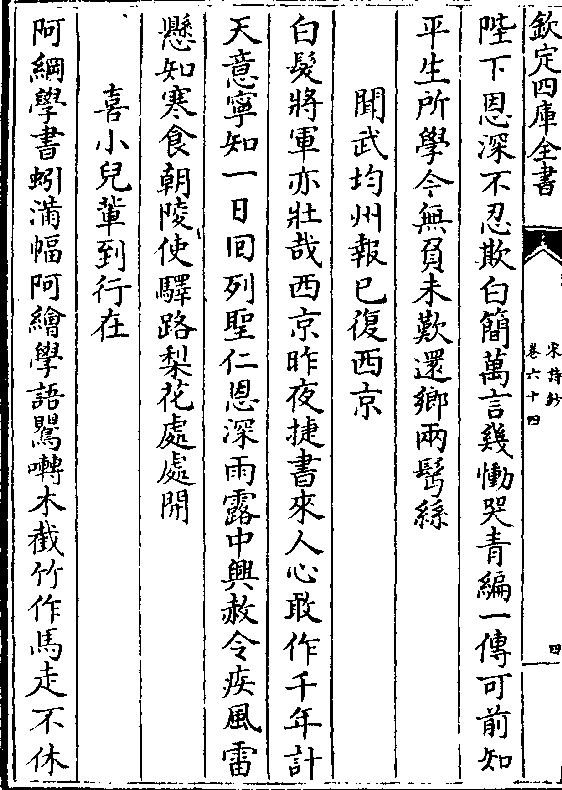 欽定四庫全書
宋詩鈔
卷六十四
四
陛下恩深不忍欺白簡萬言幾慟哭青編一傳可前知
平生所學今無負未歎還鄉兩鬢絲
聞武均州報已復西京
白髮將軍亦壯哉西京昨夜捷書來人心敢作千年計
天意寧知一日回列聖仁恩深雨露中興赦令疾風雷
懸知寒食朝陵使驛路梨花處處開
喜小兒輩到行在
阿綱學書蚓滿幅阿繪學語鸎囀木截竹作馬走不休